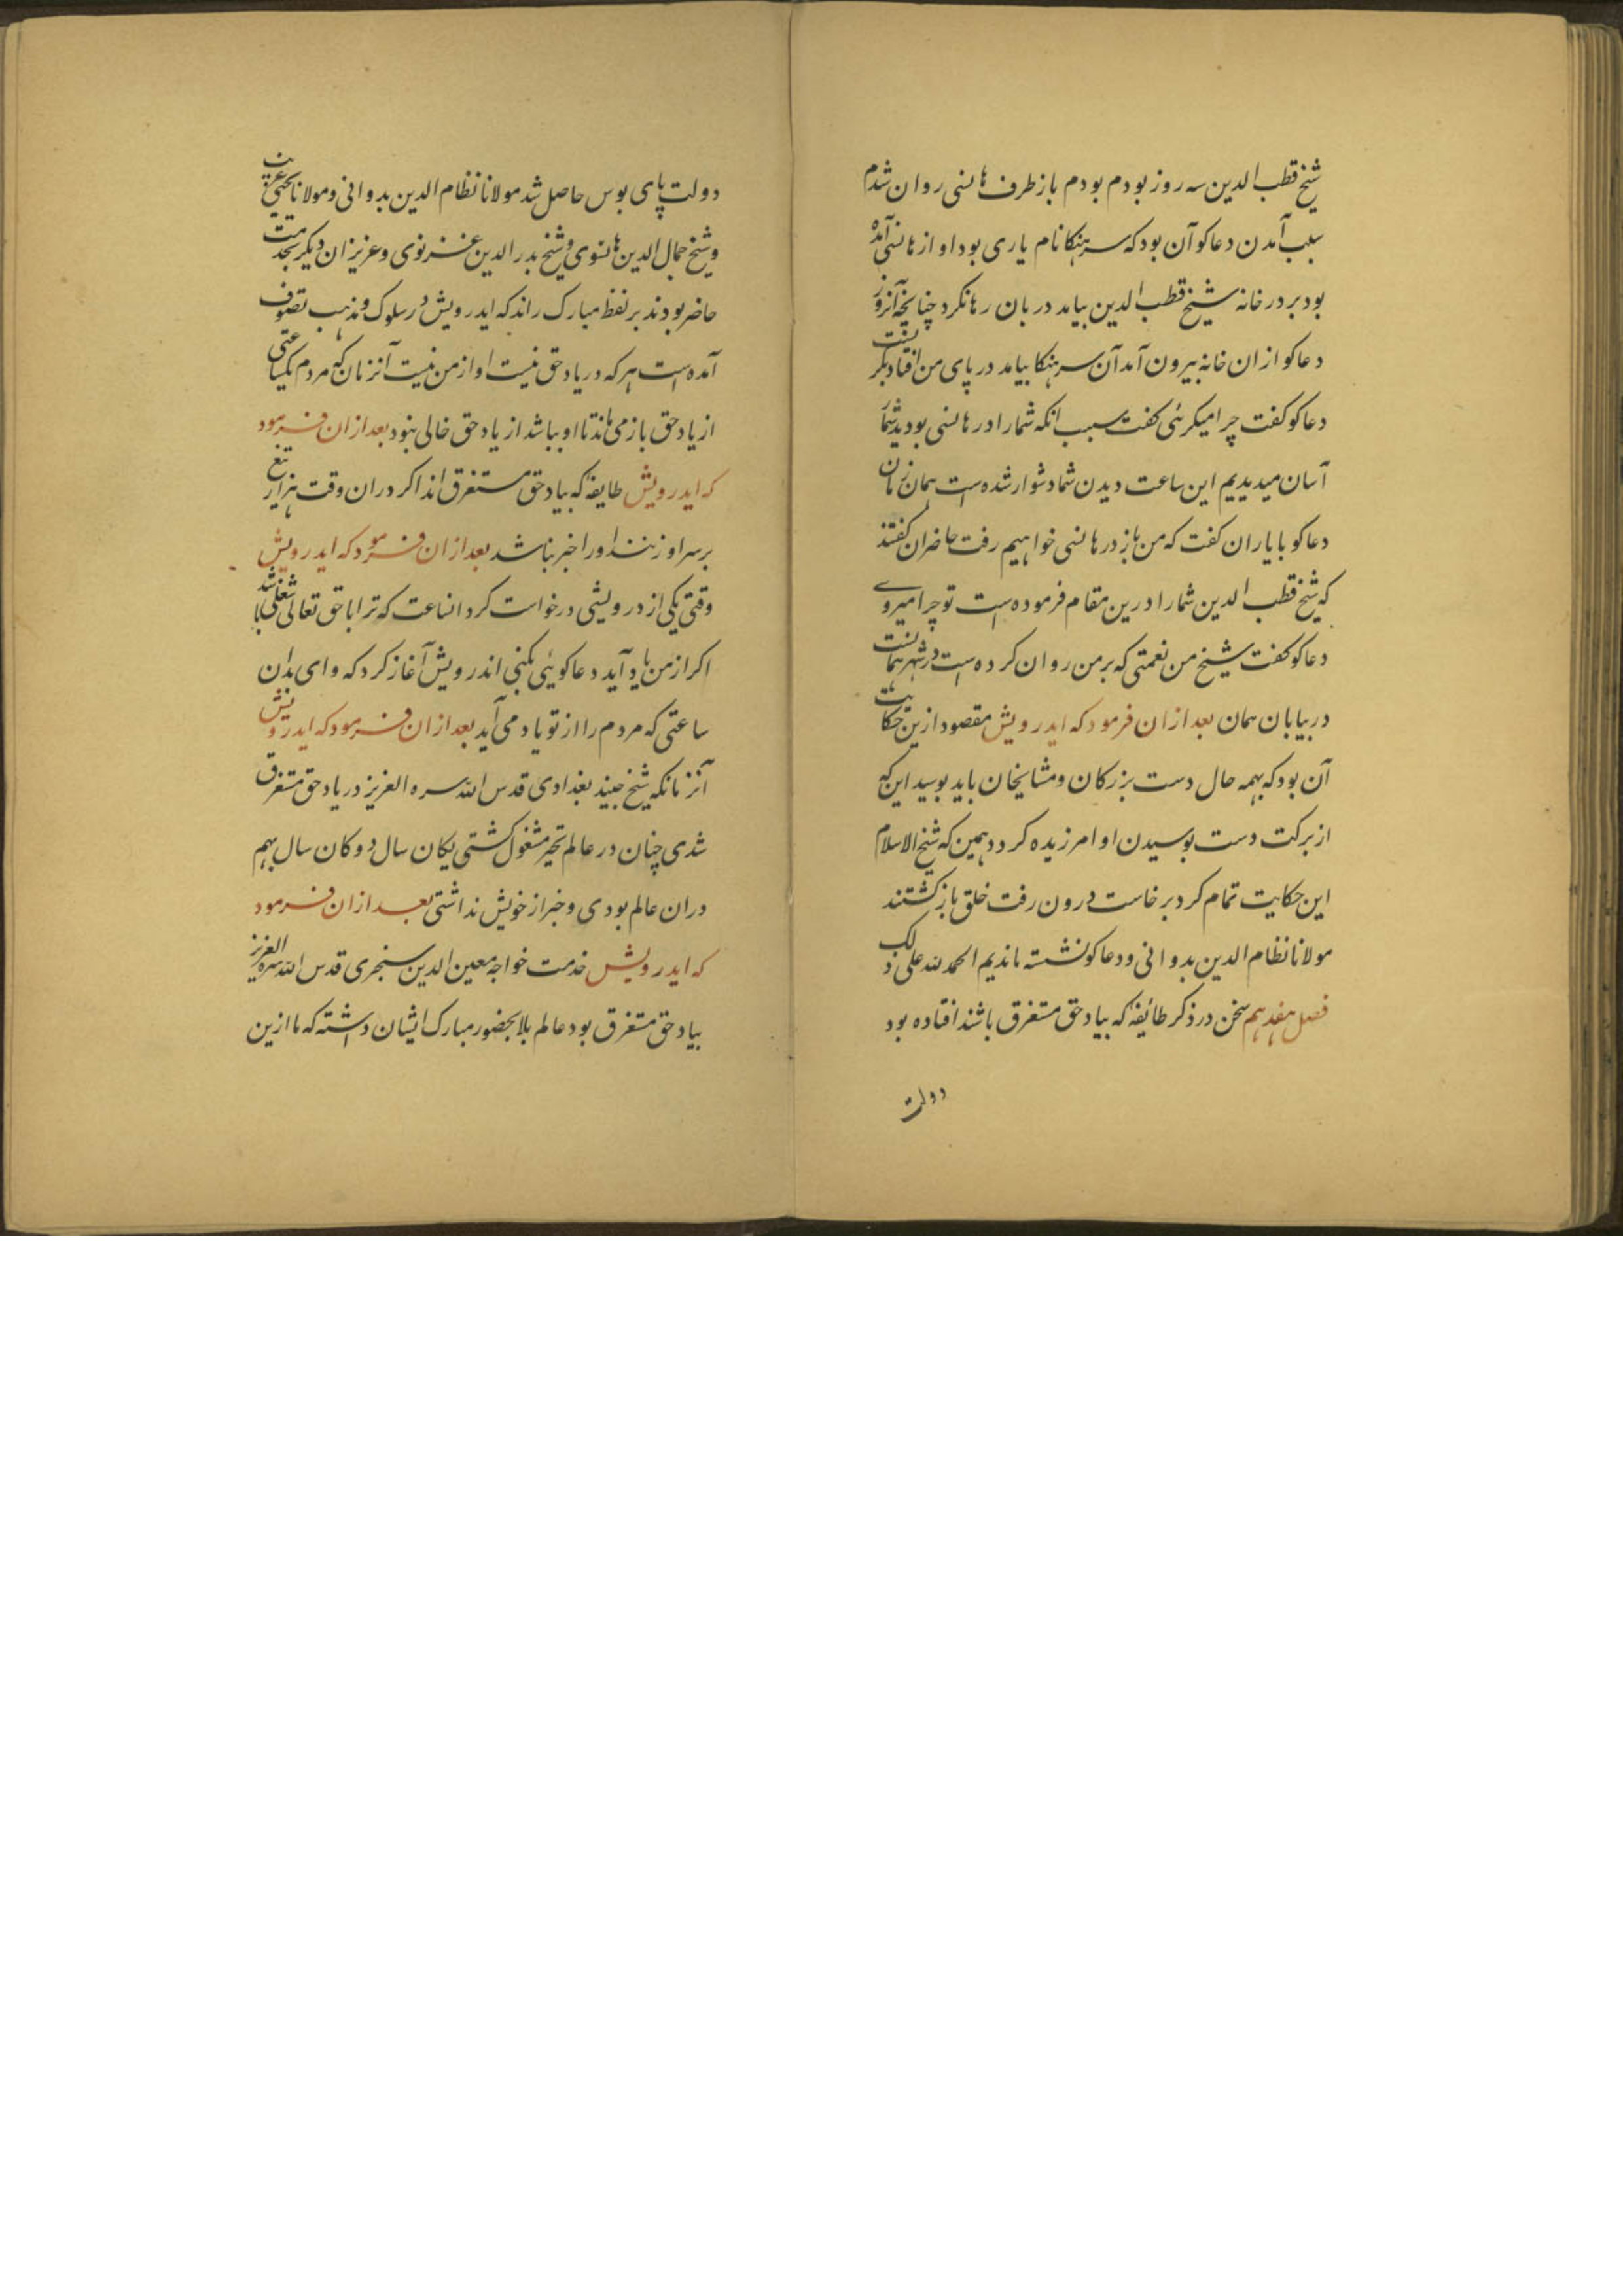 شیخ قطب الدین سه روز بودم بودم باز طرف هانسی روان شدم
سبب آمدن دعاکو آن بود که سرهنکا نام یاری بود او از هانسی آمده
بود بر در خانه شیخ قطب الدین بیامد دربان رها نکرد چنانچه آنروز
دعاکو از ان خانه بیرون آمد آن سرهنکا بیامد در پای من افتاد بکریست
دعاکو کفت چرا میکرئی کفت سبب انکه شما را در هانسی بودید شما
آسان میدیدیم این ساعت دیدن شما دشوار شده است همان زمان
دعاکو با یاران کفت که من باز در هانسی خواهیم رفت حاضران کفتند
که شیخ قطب الدین شما را درین مقام فرموده است تو چرا میروی
دعاکو کفت شیخ من نعمتی که بر من روان کرده است در شهر همانست
در بیابان همان بعد ازان فرمود که ایدرویش مقصود ازین حکایت
آن بود که بهمه حال دست بزرکان و مشایخان باید بوسید این که
از برکت دست بوسیدن او امرزیده کردد همین که شیخ الاسلام
این حکایت تمام کرد برخاست درون رفت خلق باز کشتند
مولانا نظام الدین بدوانی و دعاکو نشسته ماندیم الحمد لله علی ذلک
فصل هفدهم سخن در ذکر طائفه که بیاد حق مستغرق باشند افتاده بود
دولت
دولت پای بوس حاصل شد مولانا نظام الدین بدوانی و مولانا یحیی غریب
و شیخ جمال الدین هانسوی و شیخ بدر الدین غزنوی و عزیزان دیکر بخدمت
حاضر بودند بر لفظ مبارک راند که ایدرویش در سلوک و مذهب تصوف
آمده است هر که در یاد حق نیست او از من نیست آنزمان که مردم یکساعتی
از یاد حق باز می ماند تا او بباشد از یاد حق خالی نبود بعد ازان فرمود
که ایدرویش طایفه که بیاد حق مستغرق اند اکر دران وقت هزار تیغ
بر سر او زنند او را خبر نباشد بعد ازان فرمود که ایدرویش
وقتی یکی از درویشی درخواست کرد انساعت که ترا با حق تعالی شغلی باشد
اکر از من یاد آید دعاکوئی بکنی اندرویش آغاز کرد که وای بدان
ساعتی که مردم را از تو یاد می آید بعد ازان فرمود که ایدرویش
آنزمانکه شیخ جنید بغدادی قدس الله سره العزیز در یاد حق مستغرق
شدی چنان در عالم تحیر مشغول کشتی یکان سال دوکان سال بهم
دران عالم بودی و خبر از خویش نداشتی بعد ازان فرمود
که ایدرویش خدمت خواجه معین الدین سنجری قدس الله سره العزیز
بیاد حق مستغرق بود عالم بلا بحضور مبارک ایشان داشته که ما ازین